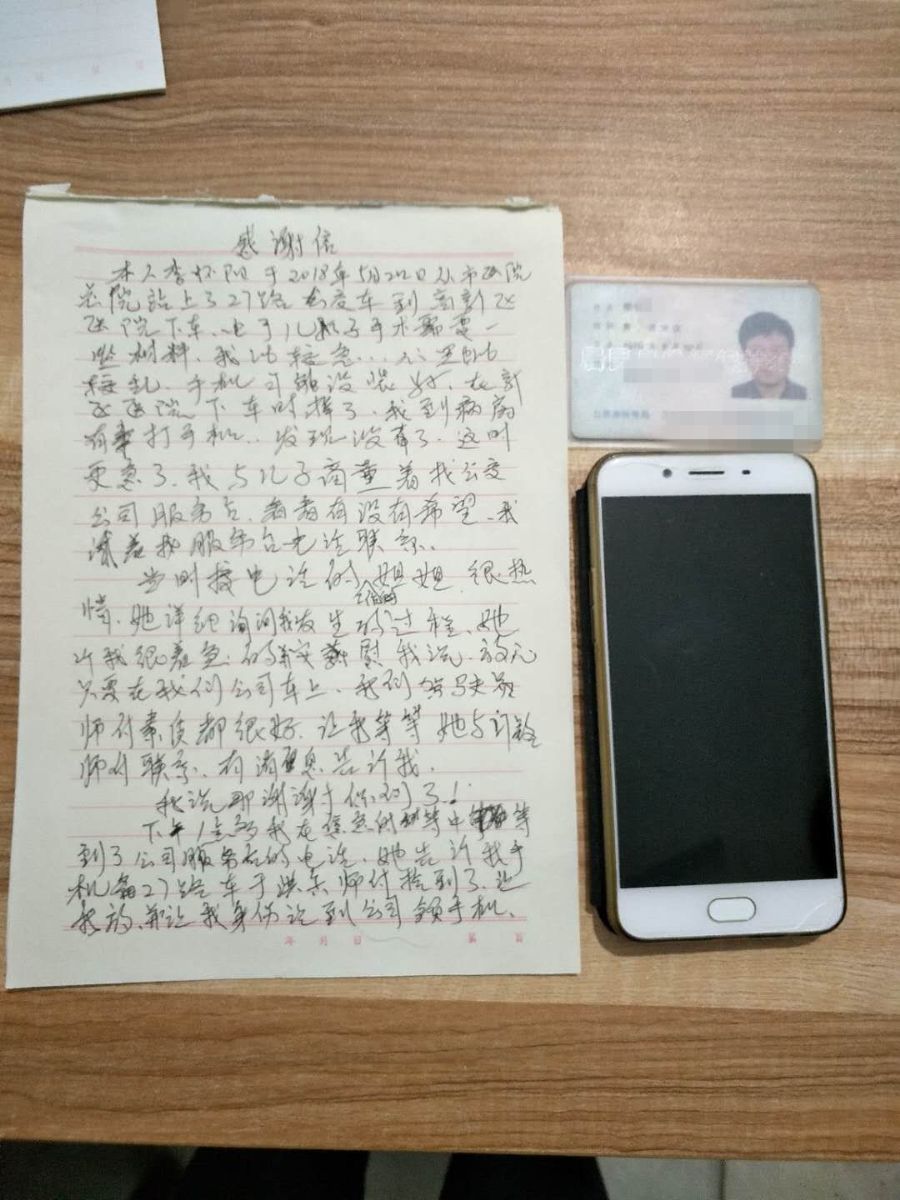 感谢信
本人李怀阳于2018年5月20日从市医院
总院站上了27路公交车到高新区
医院下车、由于儿子手术需要一
些材料、我比较急...心里也比
较乱、手机可能没装好、在新
区医院下车时掉了、我到病房
有事打手机..发现没有了、这时
更急了、我与儿子商量着找公交
公司服务台、看看有没有希望、我
试着找服务台电话联系、
当时接电话的姐姐、很热
情、她详细询问我发生的过程、她
听我很着急、安慰我说、放心
只要在我们公司车上、我们驾驶员
师付素质都很好、让我等等她与
师付联系、有消息告诉我、
我说那谢谢你们了!
下午1点多我在焦急的等中等
到了公司服务台的电话、她告诉我手
机有27路车于洪东师付捡到了、让
我放、并让我身份证到公司领手机、
年 月 日
第 页